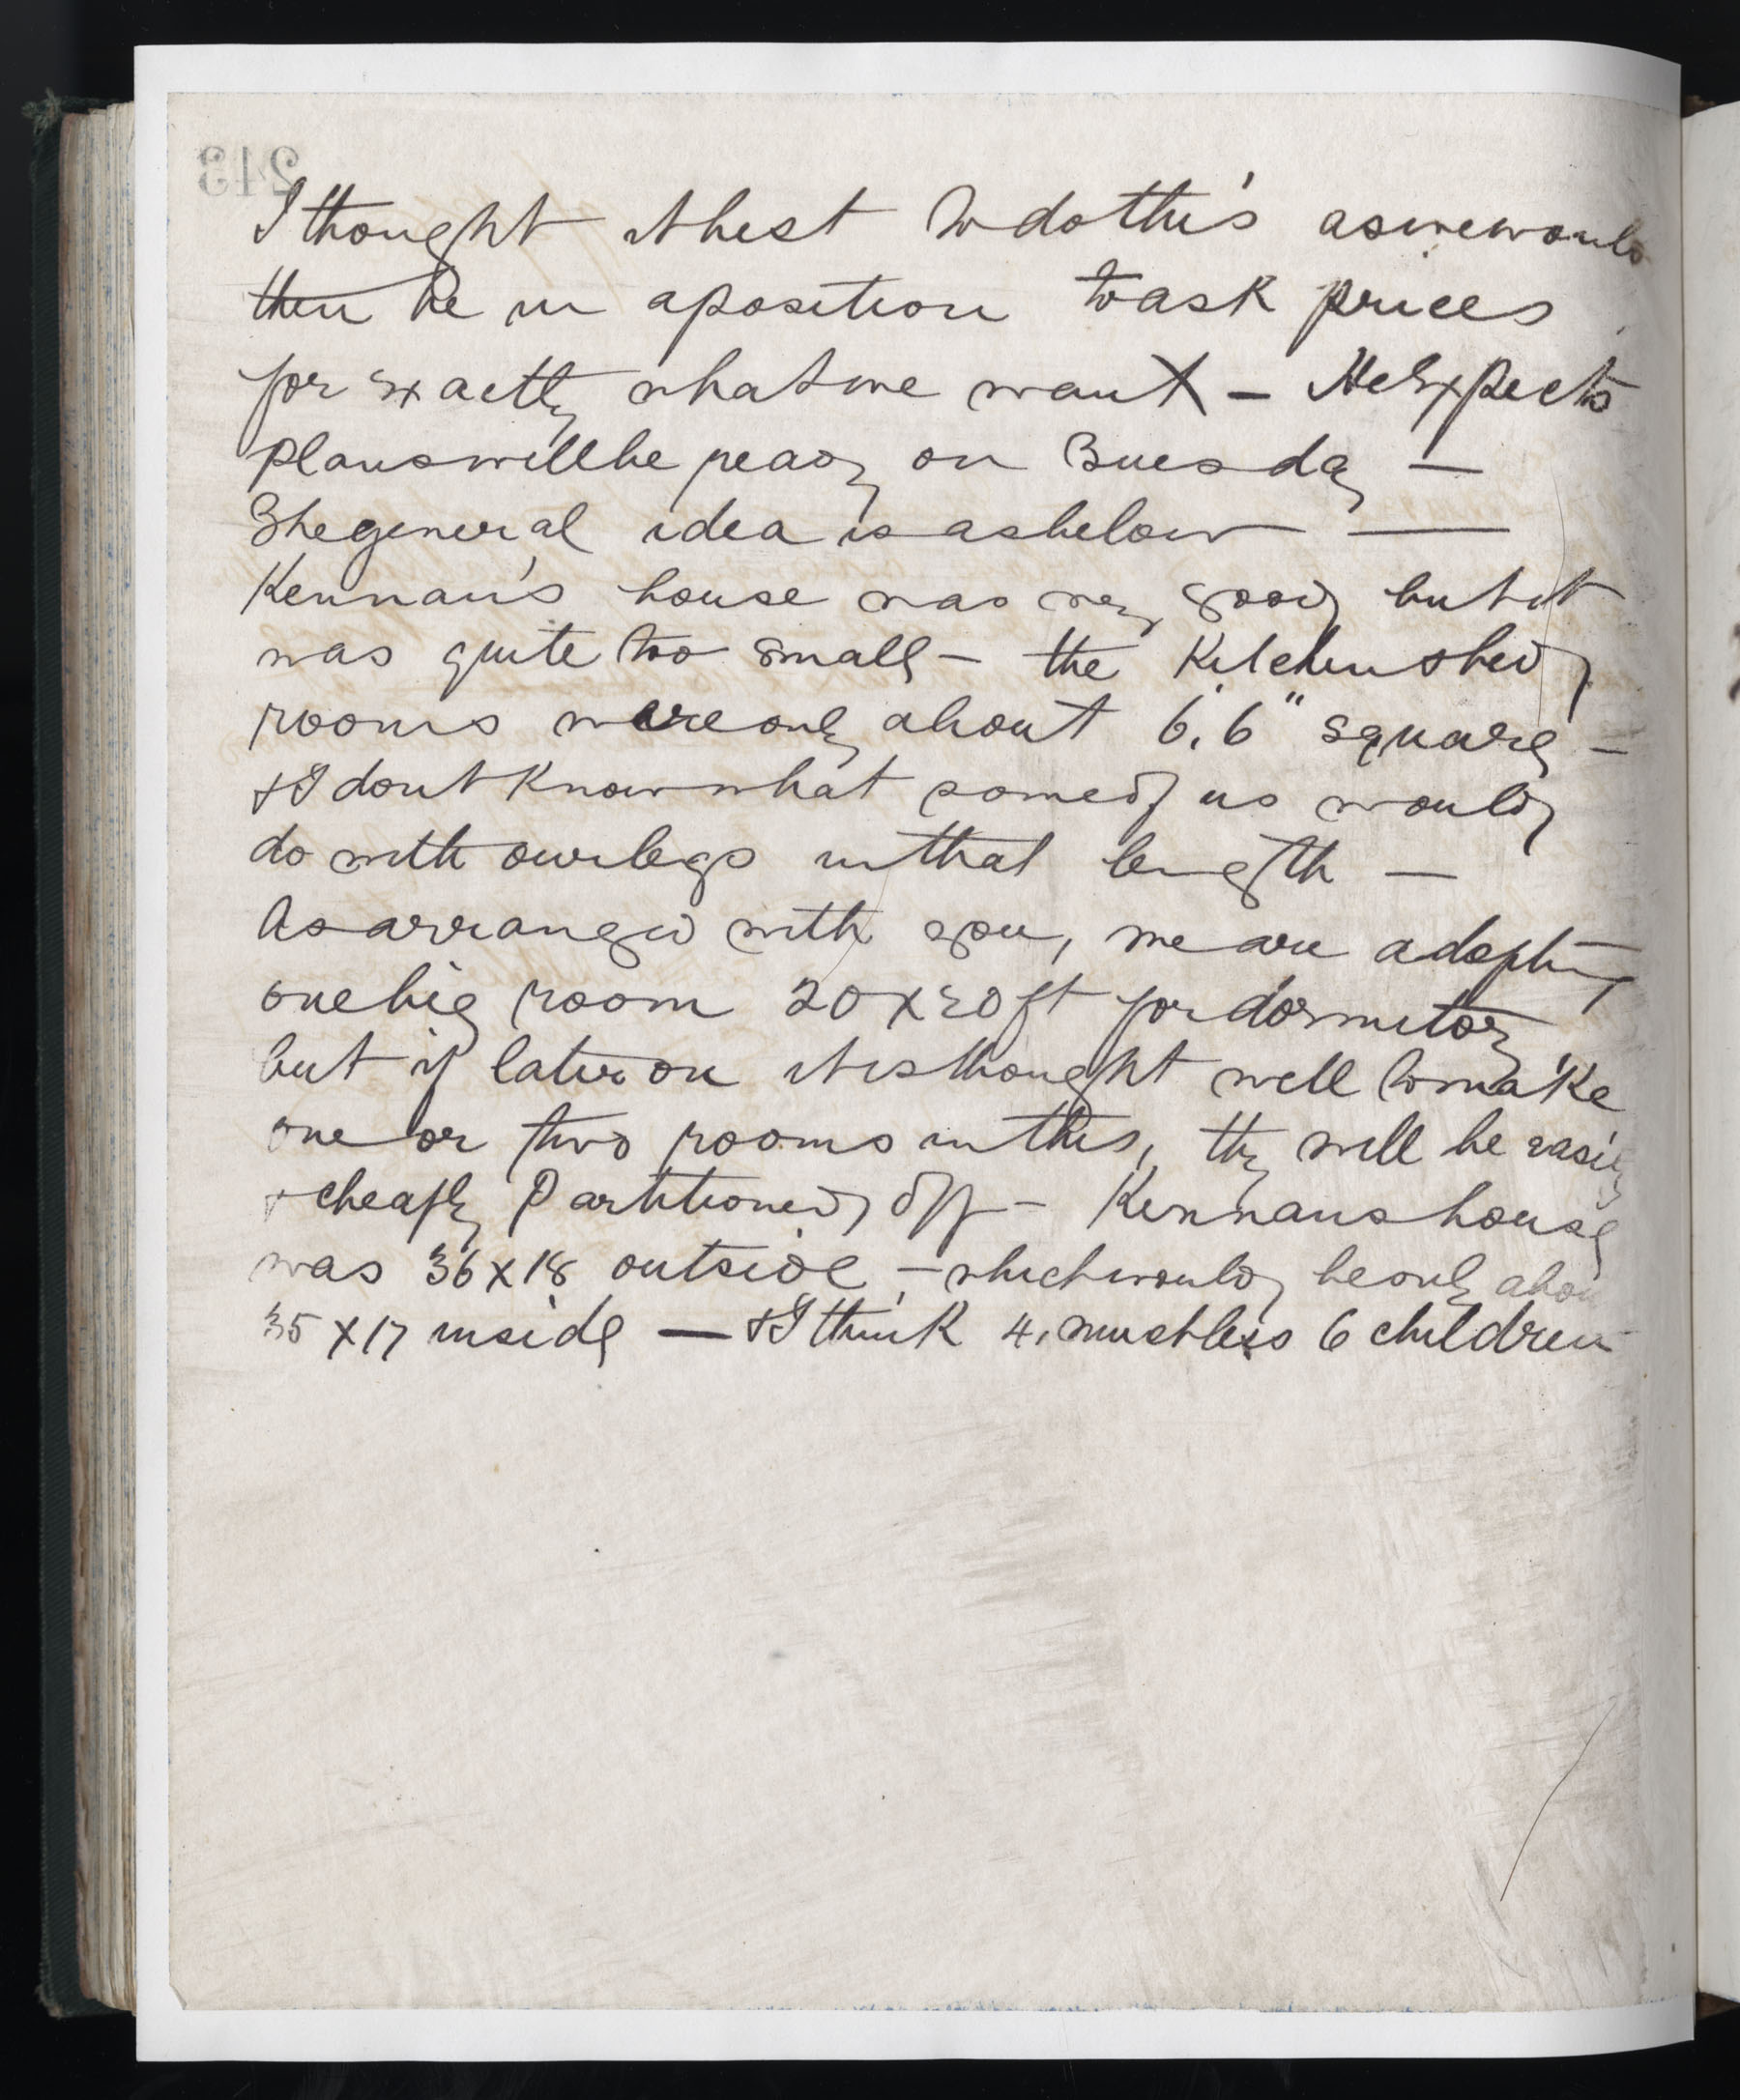 243
I thought it best to do this as we would
then be in a position to ask prices
for exactly what we want – He expects
plans will be ready on Tuesday —
The general idea is as below —
Kennan's house was very good but it
was quite too small – the Kitchen & bed
rooms were only about 6.'6" square –
& I dont Know what some of us would
do with our legs in that length —
As arranged with you, we are adopting
one big room 20 x 20 ft for dormitory
but if later on it is thought well to make
one or two rooms in this, they will be easily
& cheaply Partitioned off – Kennans house
was 36 x 18 outside, – which would be only about
35 x 17 inside — & I think 4, much less 6 children